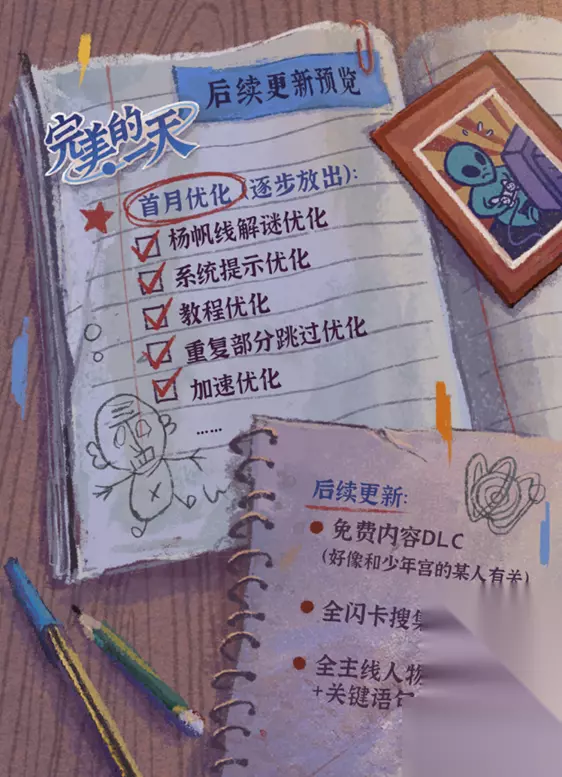 后续更新预览
完美的一天
首月优化(逐步放出):
杨帆线解谜优化
系统提示优化
教程优化
重复部分跳过优化
加速优化
……
后续更新:
免费内容DLC
(好像和少年宫的某人有关)
全闪卡搜集
全主线人物
+关键语句